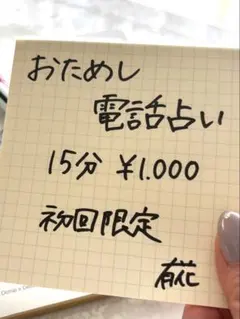 おためし
電話占い
15分 ¥1.000
初回限定
有花